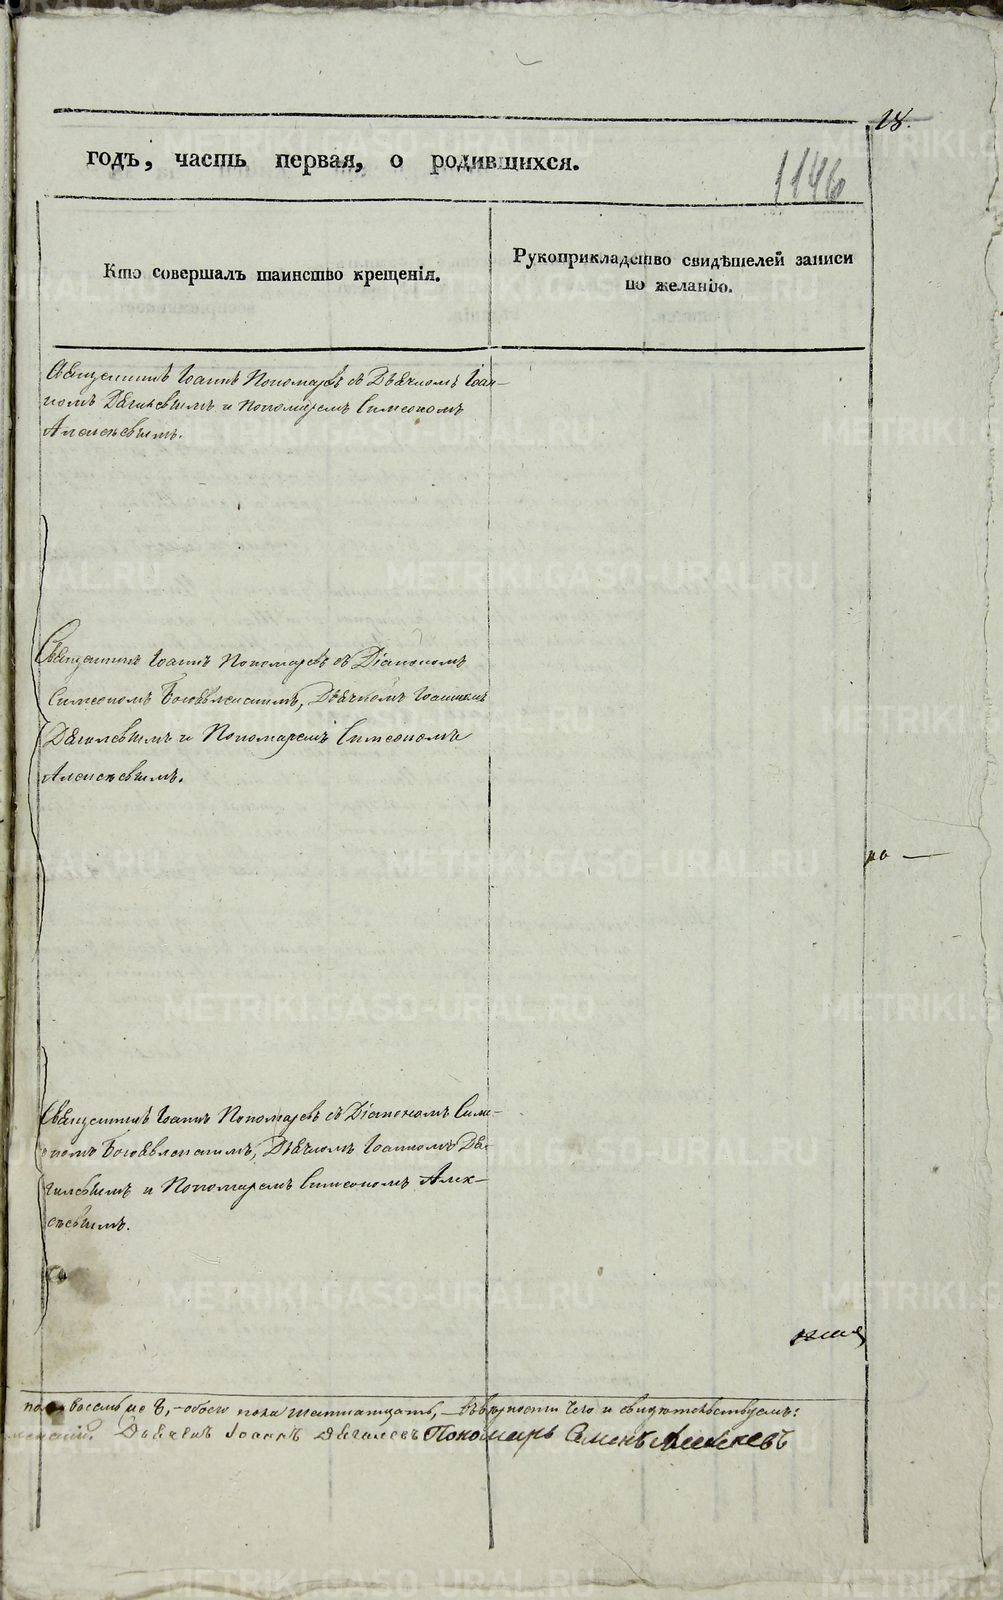 18.
годъ, часть первая, о родившихся.
1146
Кто совершалъ таинство крещенія.
Рукоприкладство свидѣтелей записи
по желанію.
Священникъ Іоаннъ Пономаревъ съ Дьячкомъ Іоан-
номъ Дягилевымъ и Пономаремъ Симеономъ
Алексѣевымъ.
Священникъ Іоаннъ Пономаревъ съ Діакономъ
Симеономъ Богоявленскимъ, Дьячкомъ Іоанномъ
Дягилевымъ и Пономаремъ Симеономъ
Алексѣевымъ.
Священникъ Іоаннъ Пономаревъ съ Діакономъ Симе-
ономъ Богоявленскимъ, Дьячкомъ Іоанномъ Дя-
гилевымъ и Пономаремъ Симеономъ Алек-
сѣевымъ.
обоего пола шестнатцать, въ вѣрности чего и свидѣтельствуемъ:
Дьячекъ Іоаннъ Дягилевъ Пономарь Семенъ Алексѣевъ
METRIKI.GASO-URAL.RU